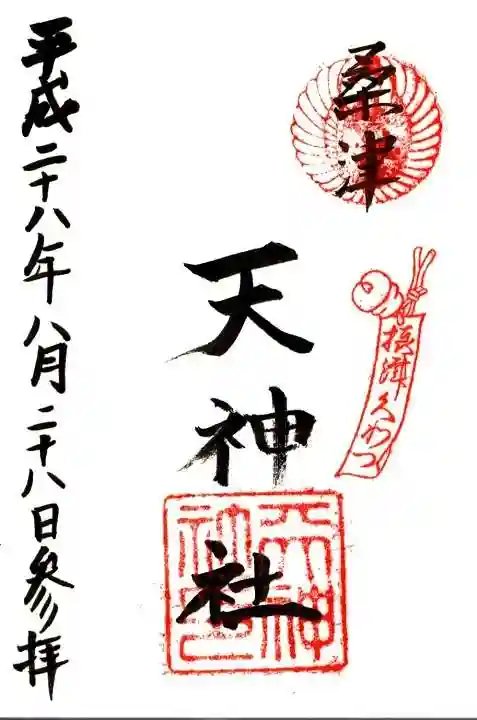 桑津
摂津くわつ
天神社
天神社印
平成二十八年八月二十八日参拝